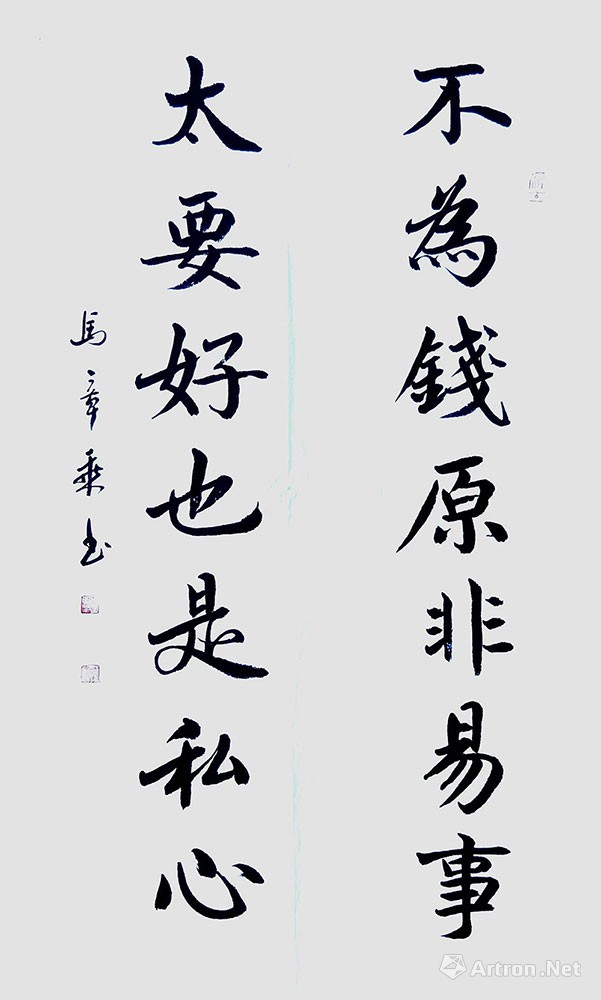 不為錢原非易事
太要好也是私心
馬章乘书
Artron.Net